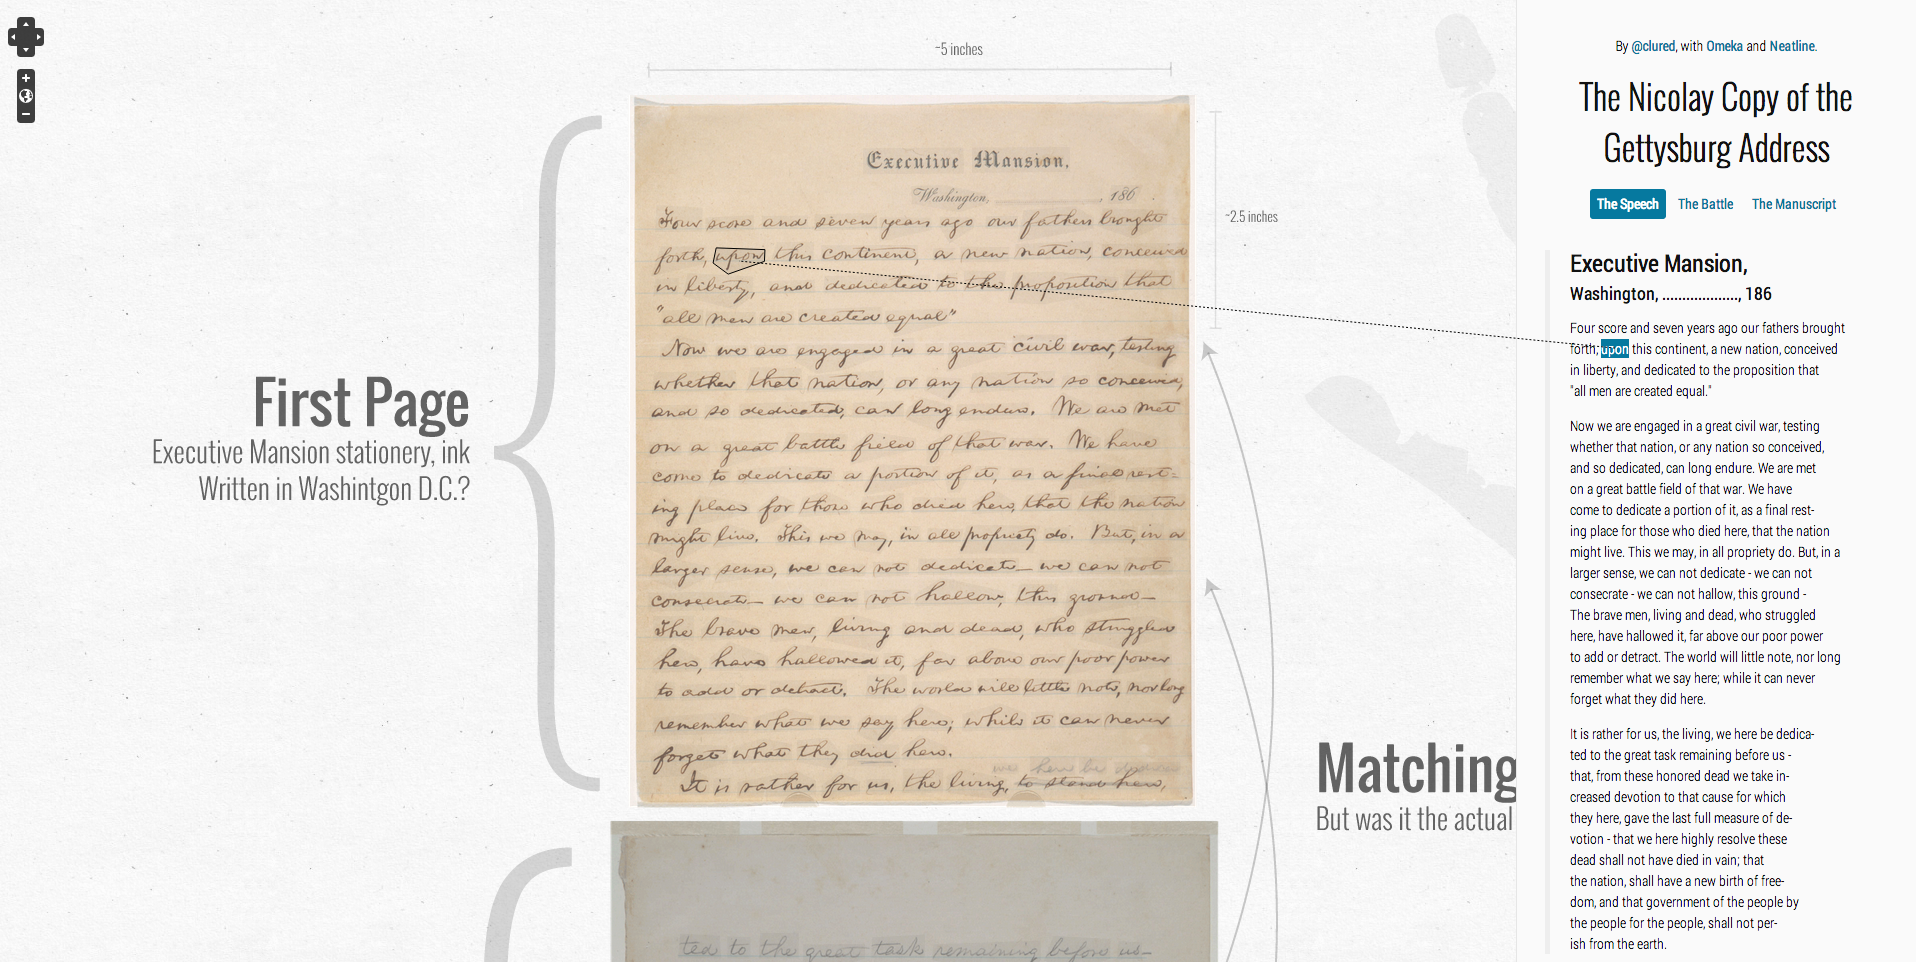 ~5 inches
Executive Mansion,
Washington, , 186 .
Four score and seven years ago our fathers brought
forth, upon this continent, a new nation, conceived
in liberty, and dedicated to the proposition that
"all men are created equal"
Now we are engaged in a great civil war, testing
whether that nation, or any nation so conceived,
and so dedicated, can long endure. We are met
on a great battle field of that war. We have
come to dedicate a portion of it, as a final rest-
ing place for those who died here, that the nation
might live. This we may, in all propriety do. But, in a
larger sense, we can not dedicate— we can not
consecrate— we can not hallow, this ground—
The brave men, living and dead, who struggled
here, have hallowed it, far above our poor power
to add or detract. The world will little note, nor long
remember what we say here; while it can never
forget what they did here.
we here be dedica
It is rather for us, the living, to stand here,
ted to the great task remaining before us—
~2.5 inches
First Page
Executive Mansion stationery, ink
Written in Washintgon D.C.?
Matching
But was it the actual
By @clured, with Omeka and Neatline.
The Nicolay Copy of the
Gettysburg Address
The Speech The Battle The Manuscript
Executive Mansion,
Washington, ..................., 186
Four score and seven years ago our fathers brought
forth, upon this continent, a new nation, conceived
in liberty, and dedicated to the proposition that
"all men are created equal."
Now we are engaged in a great civil war, testing
whether that nation, or any nation so conceived,
and so dedicated, can long endure. We are met
on a great battle field of that war. We have
come to dedicate a portion of it, as a final rest-
ing place for those who died here, that the nation
might live. This we may, in all propriety do. But, in a
larger sense, we can not dedicate - we can not
consecrate - we can not hallow, this ground -
The brave men, living and dead, who struggled
here, have hallowed it, far above our poor power
to add or detract. The world will little note, nor long
remember what we say here; while it can never
forget what they did here.
It is rather for us, the living, we here be dedica-
ted to the great task remaining before us -
that, from these honored dead we take in-
creased devotion to that cause for which
they here, gave the last full measure of de-
votion - that we here highly resolve these
dead shall not have died in vain; that
the nation, shall have a new birth of free-
dom, and that government of the people by
the people for the people, shall not per-
ish from the earth.